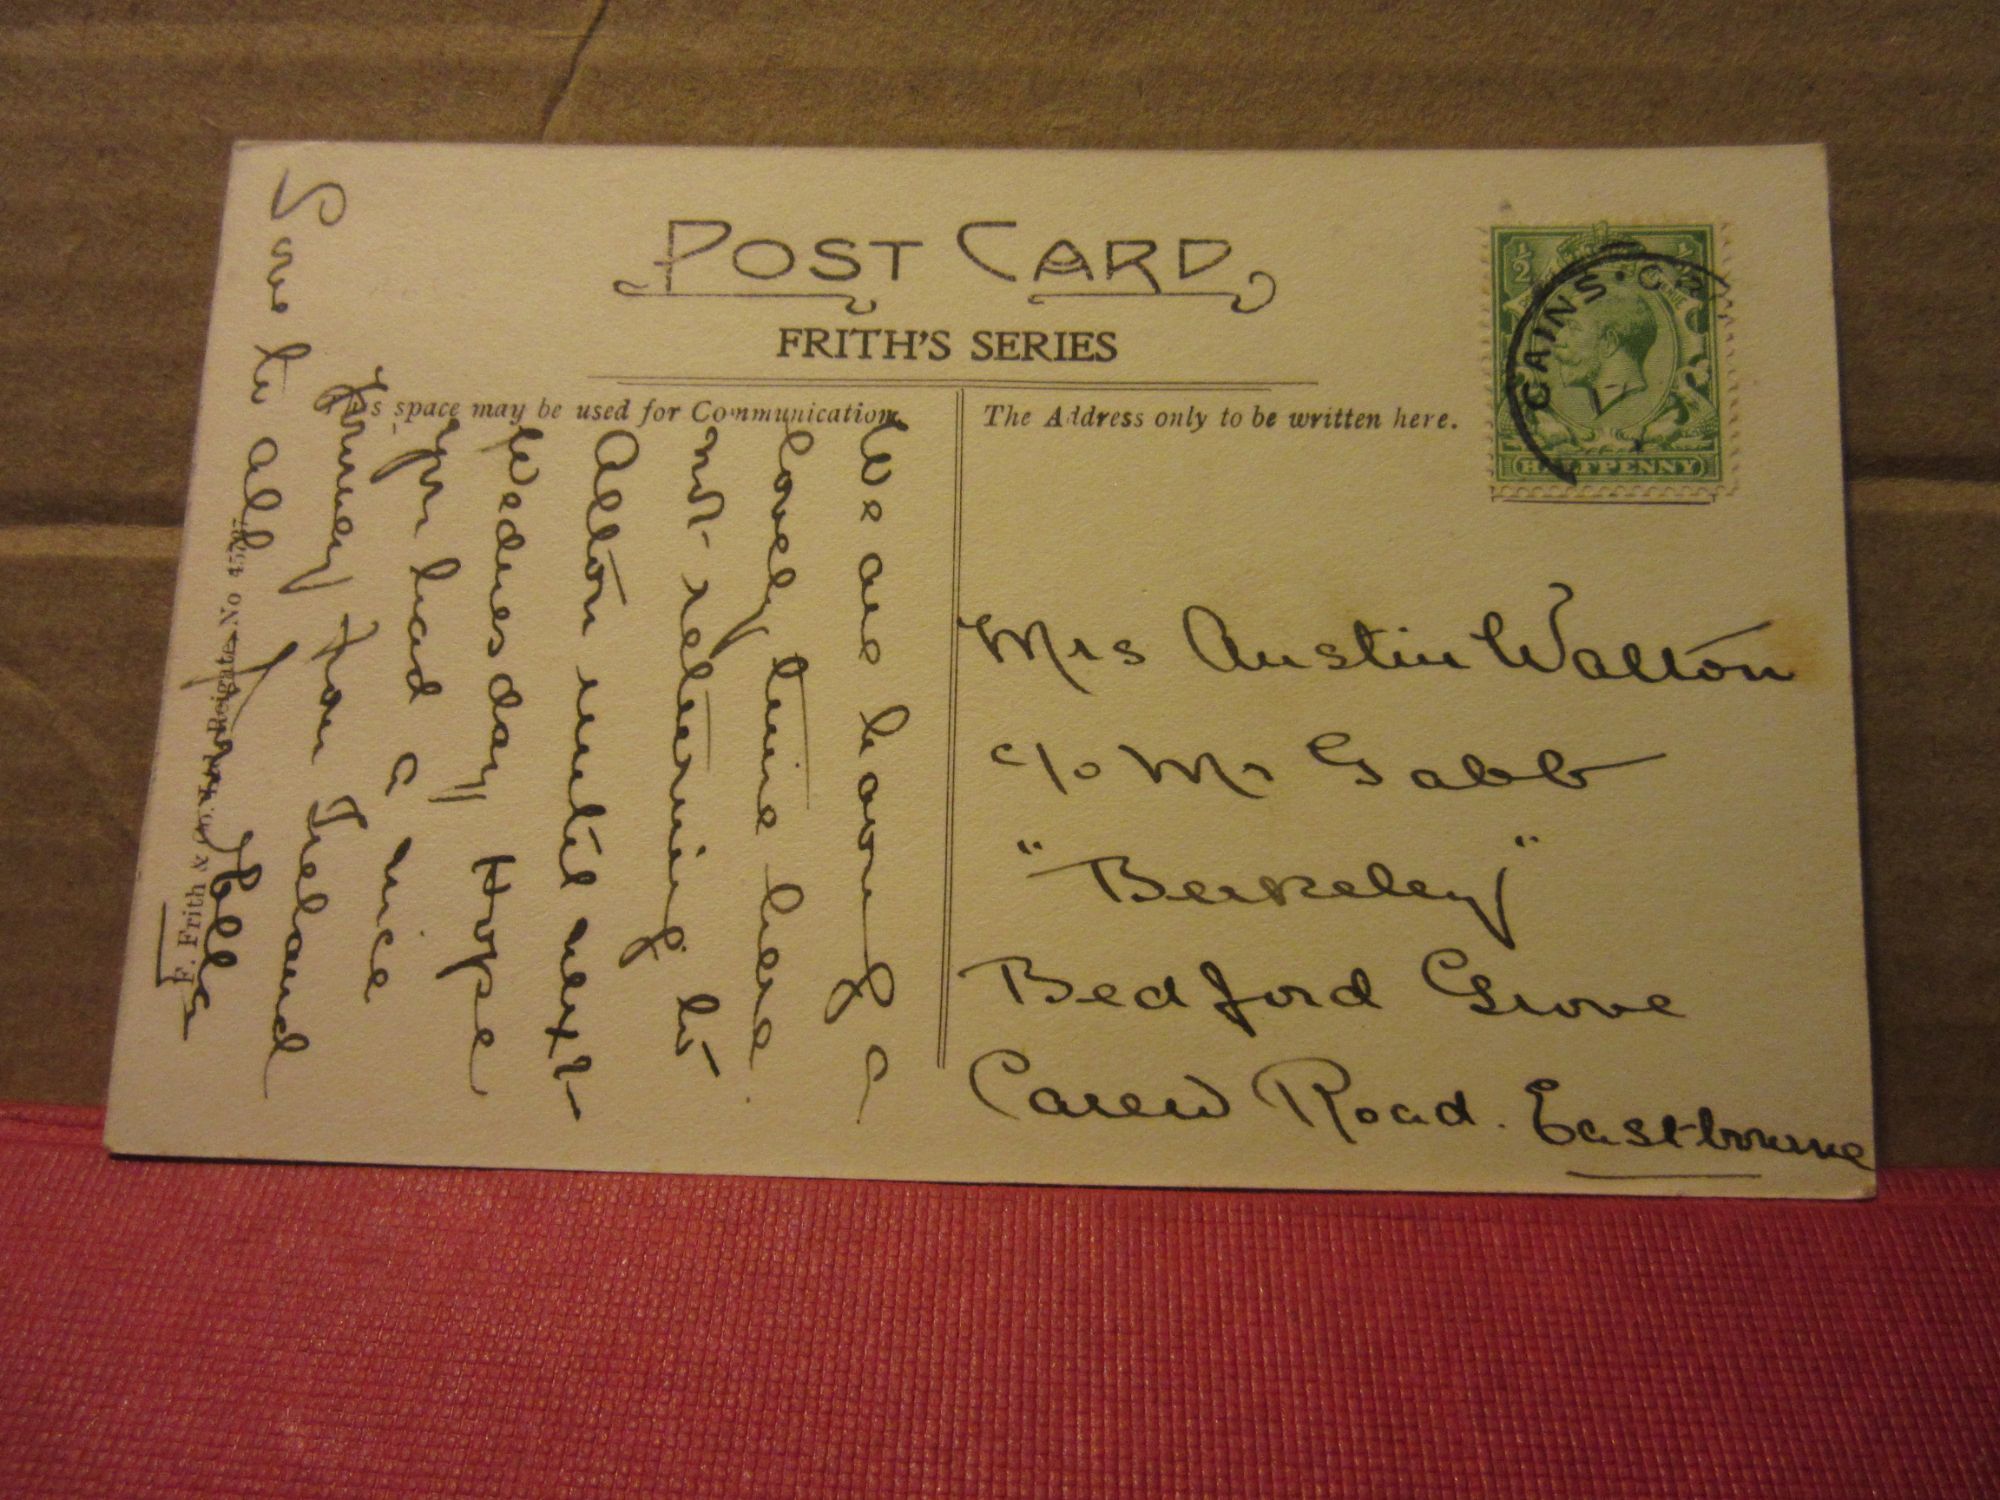 POST CARD
FRITH'S SERIES
This space may be used for Communication.
The Address only to be written here.
½ ½
CAINS · CR
HALFPENNY
We are having a
lovely time here
not returning to
Alton until next
Wednesday Hope
you had a nice
journey from Ireland
Love to all from
Mrs Austin Walton
c/o Mr Gabb
"Berkeley"
Bedford Grove
Carew Road. Eastbourne
F. Frith & Co. Ltd. Reigate. No